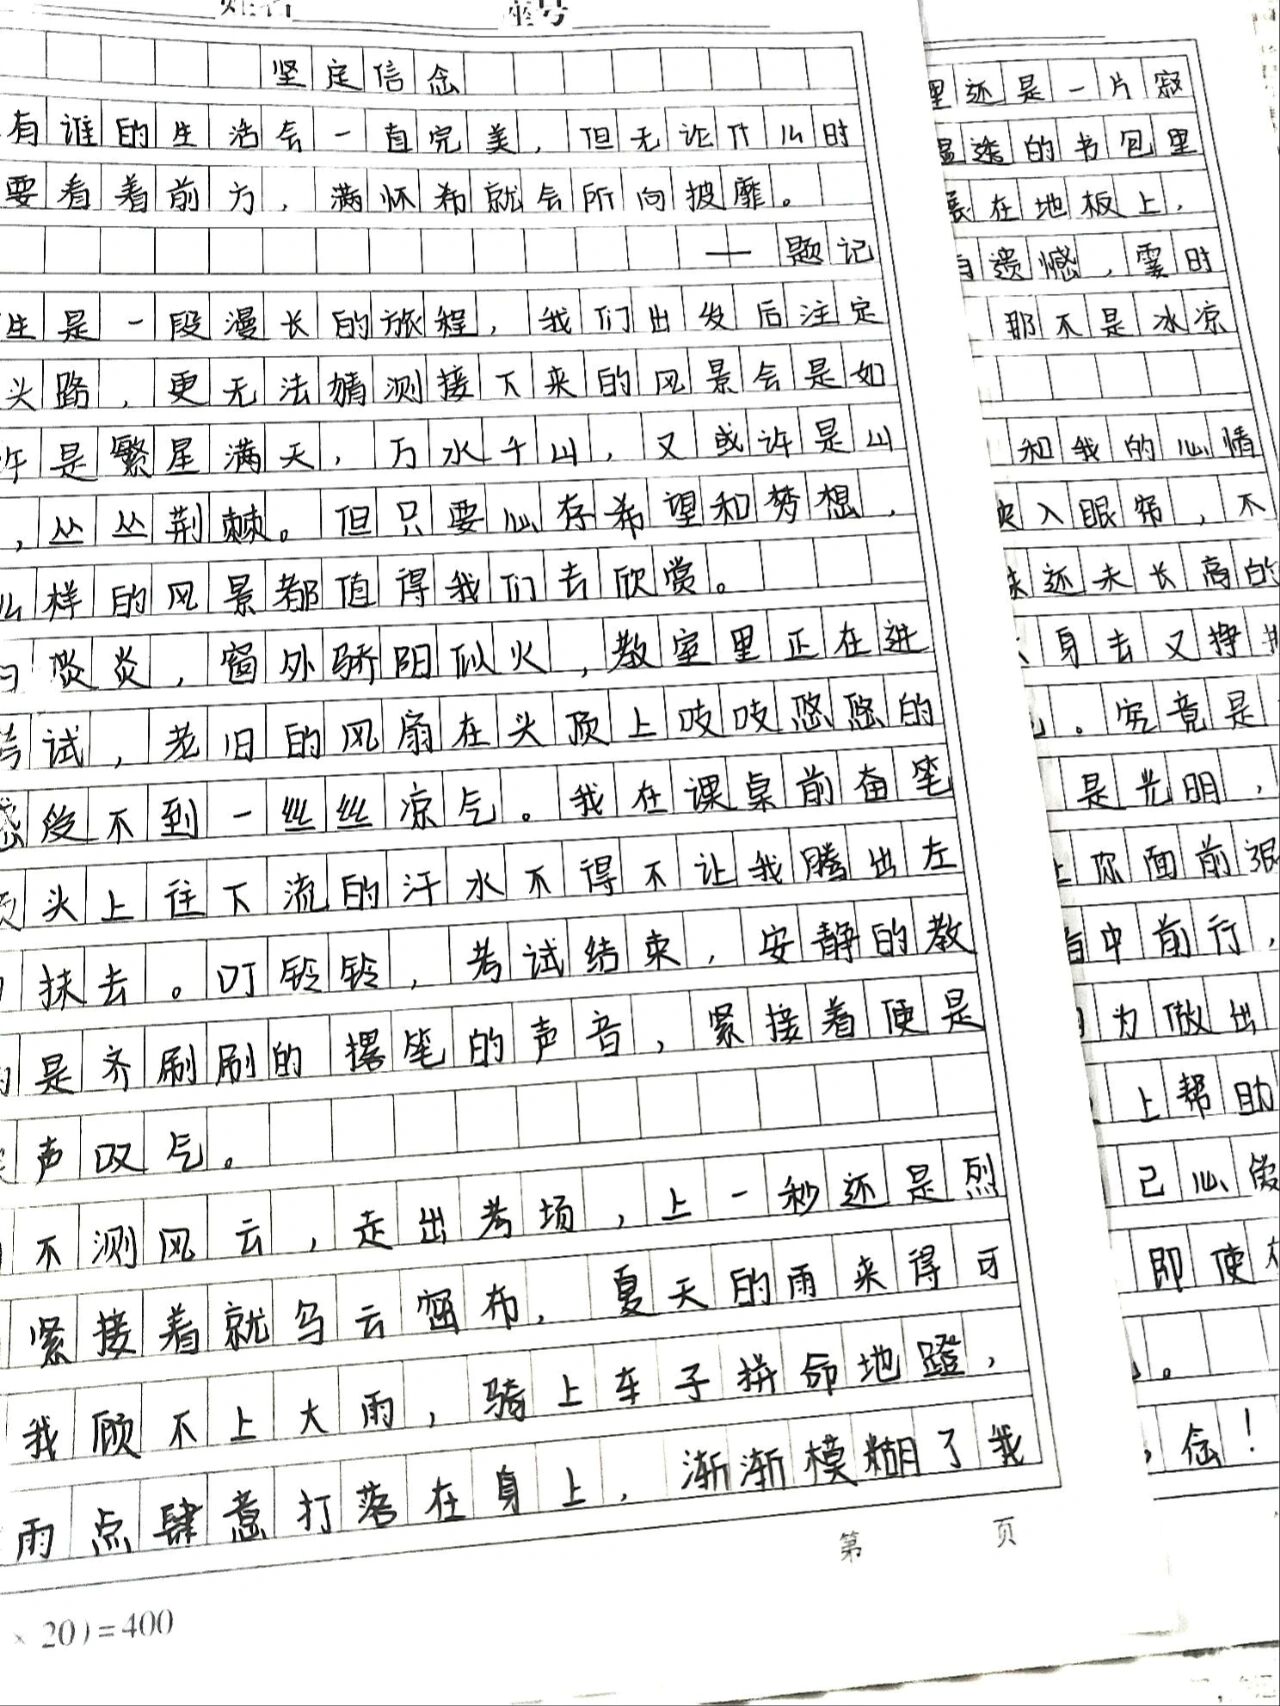 坚定信念
有谁的生活会一直完美，但无论什么时
要看着前方，满怀希就会所向披靡。
——题记
生是一段漫长的旅程，我们出发后注定
头路，更无法猜测接下来的风景会是如
许是繁星满天，万水千山，又或许是山
，丛丛荆棘。但只要心存希望和梦想，
么样的风景都值得我们去欣赏。
日炎炎，窗外骄阳似火，教室里正在进
考试，老旧的风扇在头顶上吱吱悠悠的
感受不到一丝丝凉气。我在课桌前奋笔
头上往下流的汗水不得不让我腾出左
抹去。叮铃铃，考试结束，安静的教
的是齐刷刷的撂笔的声音，紧接着便是
声叹气。
不测风云，走出考场，上一秒还是烈
紧接着就乌云密布，夏天的雨来得可
我顾不上大雨，骑上车子拼命地蹬，
雨点肆意打落在身上，渐渐模糊了我
第 页
× 20)=400
里还是一片寂
湿透的书包里
在地板上，
遗憾，霎时
那不是冰凉
和我的心情
映入眼帘，不
还未长高的
身去又挣
。究竟是
是光明，
你面前
中前行，
为做出
上帮助
己心爱
即使
。
，念！